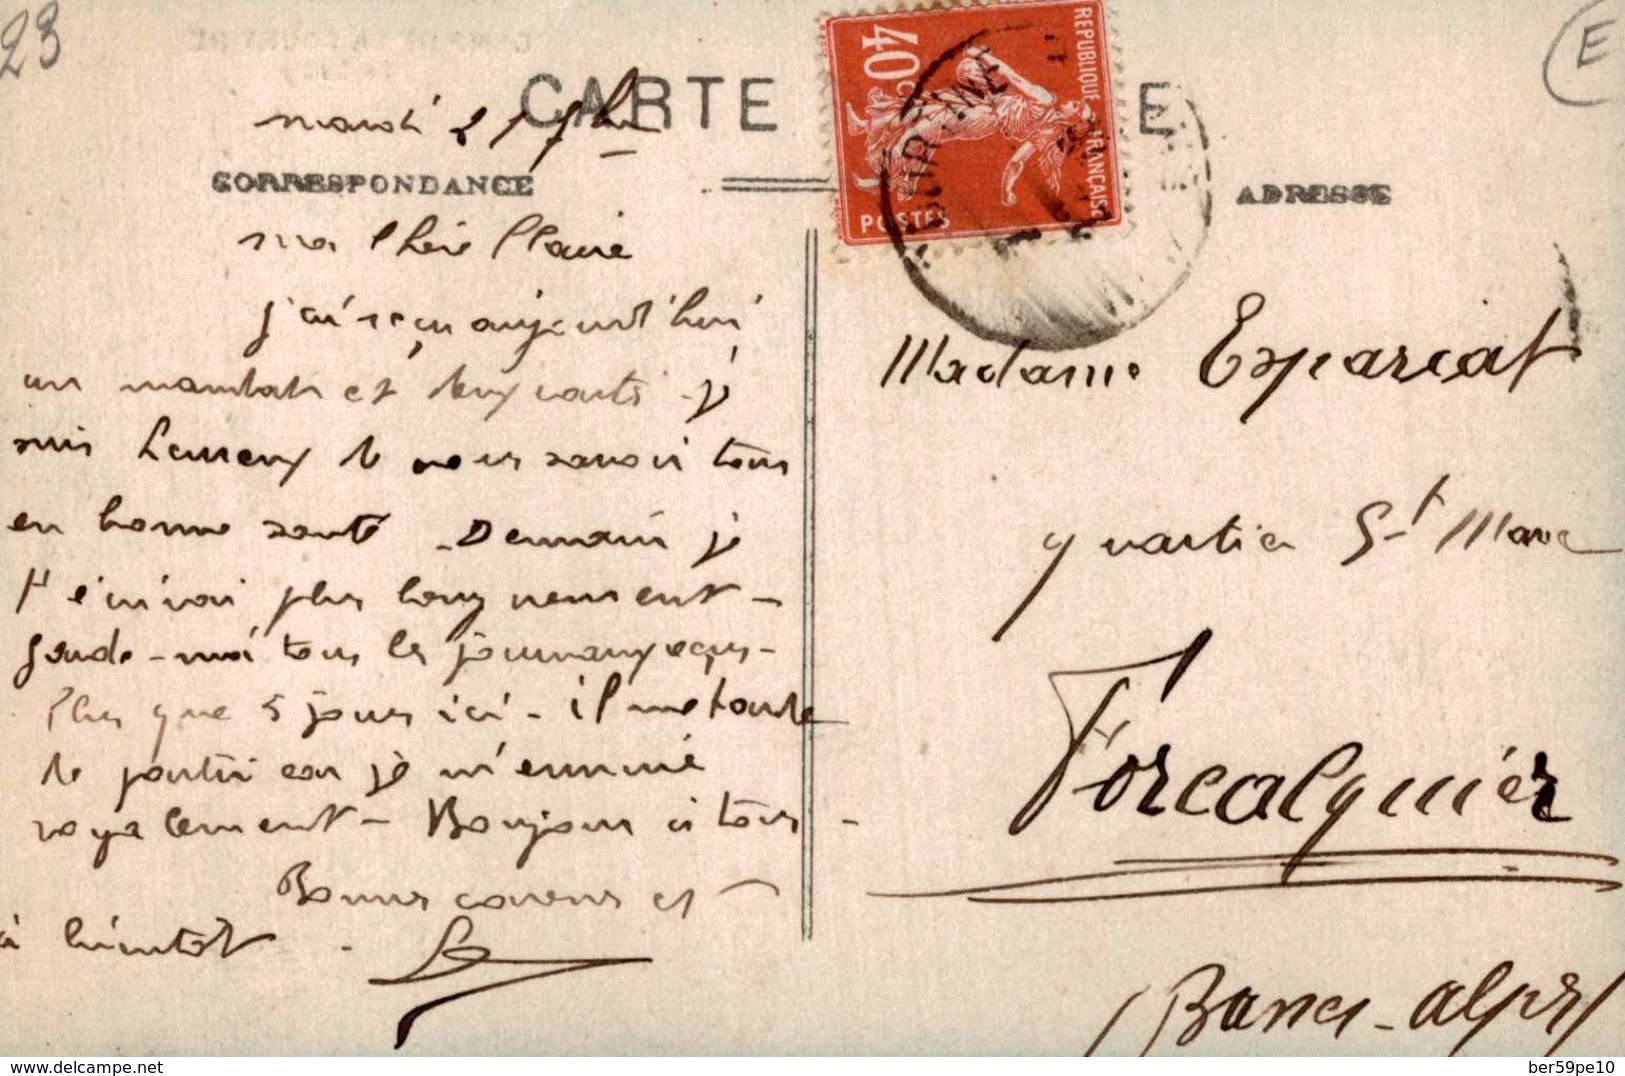 23
E
CARTE E
RÉPUBLIQUE FRANÇAISE
40c
POSTES
CORRESPONDANCE
ADRESSE
mardi 21 7bre
ma chère Claire
j'ai reçu aujourd'hui
un mandat et les cartes je
suis heureux de vous savoir tous
en bonne santé - Demain je
t'écrirai plus longuement -
garde-moi tous les journaux reçus -
Plus que 5 jours ici - il me tarde
de partir car je m'ennuie
royalement - Bonjour à tous -
Bonnes caresses et
à bientôt -
Madame Espariat
quartier St Marc
Forcalquier
(Basses-Alpes)
delcampe.net
ber59pe10